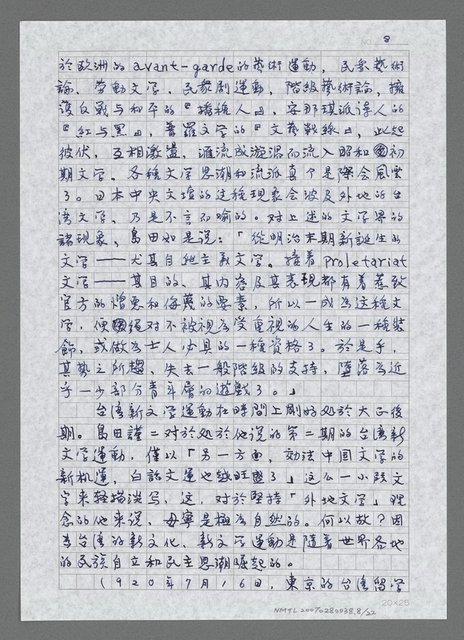 8
於歐洲的avant-garde的藝術運動,民眾藝術
論、勞動文学、民眾劇運動,階級藝術論,擁
護反戰与和平的『播種人』,安那琪派詩人的
『紅与黑』,普羅文学的『文藝戰線』,此起
彼伏,互相激盪,滙流成漩渦而流入昭和初
期文学。各種文学思潮和流派真个是際会風雲
了。日本中央文壇的這種現象会波及外地的台
湾文学,乃是不言而喻的。对上述的文学界的
諸現象,島田如是說:「從明治末期新誕生的
文学——尤其自然主義文学。接着Proletariat
文学——其目的、其内容及其表現都有着惹致
官方的憎惡和侮蔑的要素,所以一成為這種文
学,便絕对不被視為受重視的人生的一種裝
飾,或做為士人必具的一種資格了。於是乎,
其勢之所趨,失去一般階級的支持,墮落為近
乎一少部分青年層的遊戲了。」
台湾新文学運動在時間上剛好处於大正後
期。島田謹二对於处於他說的第二期的台湾新
文学運動,僅以「另一方面,効法中国文学的
新机運,白話文運也越旺盛了」這么一小段文
字來轻描淡写,這,对於堅持「外地文学」观
念的他來說,毋寧是極為自然的。何以故?因
為台湾的新文化、新文学運動是隨着世界各地
的民族自立和民主思潮崛起的。
1920年7月16日,東京的台湾留学
20×25
NMTL20070280038.8/22